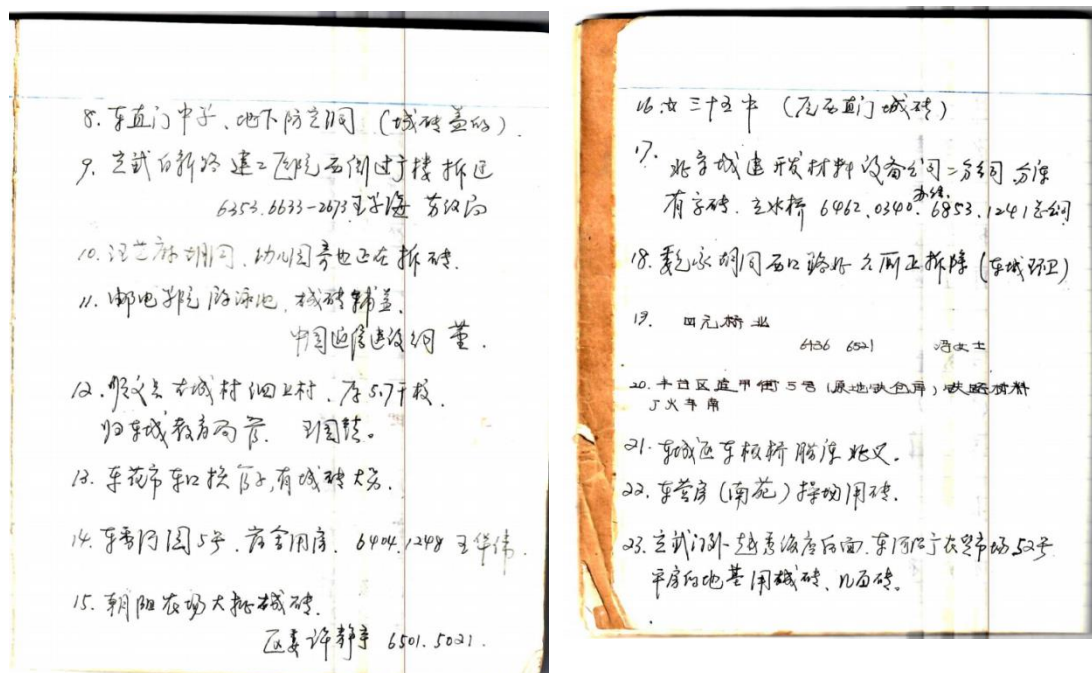 8. 东直门中学、地下防空洞 (城砖盖的).
9. 宣武白纸路建工医院西侧过广楼拆迁
6353.6633-2673 王学海
10. 汪芝麻胡同、幼儿园旁也正在拆砖.
11. 邮电部院游泳池、城砖铺盖.
中国 建设 董.
12. 顺义县古城村 村. 存5.7千枚.
归东城教育局管. 王国
13. 东花市东口 有城砖
14. 东香河园5号. 宿舍用房. 6404.1248 王华伟.
15. 朝阳农场大批城砖.
区委许静 6501.5021.
16. 女三十五中 (庑西直门城砖)
17. 北京城建开发材料设备公司二分公司
办公
有字砖. 立水桥 6462.0340. 6853.1241 总公司
18. 魏家胡同西口路北 正拆除 (东城环卫)
19. 四元桥北
6436 6521 冯女士
20. 丰台区 甲街5号 (原地铁仓库) 铁路材料
厂火车南
21. 东城区东板桥
22. 东营房 (南苑) 操场用砖.
23. 宣武门外 越秀饭店后面. 东河沿 农贸市场52号
平房的地基用城砖、几百砖。